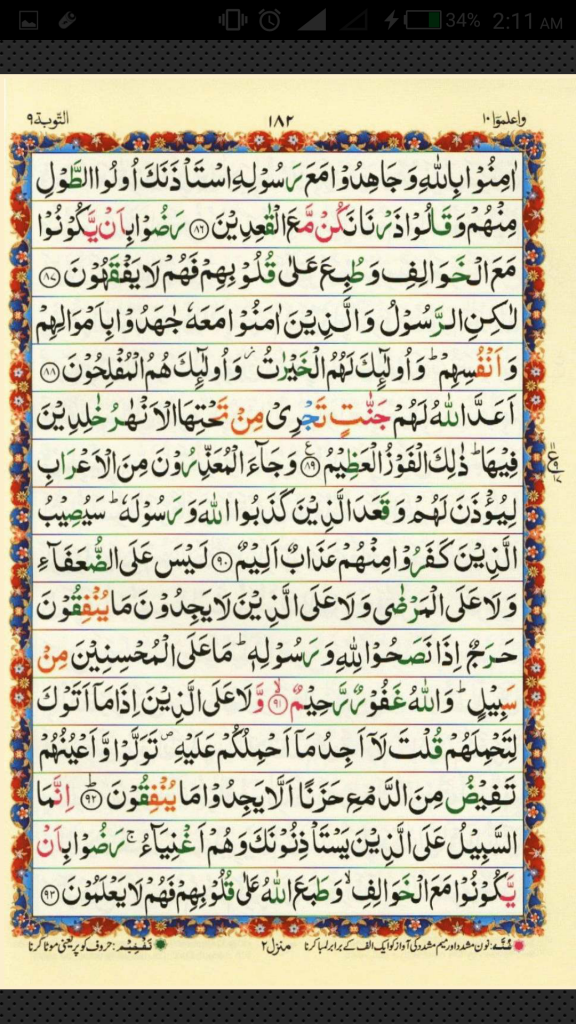 34% 2:11 AM
واعلموٓا ١٠ ١٨٢ التّوبة ٩
اٰمِنُوْا بِاللّٰهِ وَجَاهِدُوْا مَعَ رَسُوْلِهِ اسْتَاْذَنَكَ اُولُوا الطَّوْلِ
مِنْهُمْ وَقَالُوْا ذَرْنَا نَكُنْ مَّعَ الْقٰعِدِيْنَ ﴿٨٦﴾ رَضُوْا بِاَنْ يَّكُوْنُوْا
مَعَ الْخَوَالِفِ وَطُبِعَ عَلٰى قُلُوْبِهِمْ فَهُمْ لَا يَفْقَهُوْنَ ﴿٨٧﴾
لٰكِنِ الرَّسُوْلُ وَالَّذِيْنَ اٰمَنُوْا مَعَهٗ جٰهَدُوْا بِاَمْوَالِهِمْ
وَاَنْفُسِهِمْ ؕ وَاُولٰٓئِكَ لَهُمُ الْخَيْرٰتُ ؗ وَاُولٰٓئِكَ هُمُ الْمُفْلِحُوْنَ ﴿٨٨﴾
اَعَدَّ اللّٰهُ لَهُمْ جَنّٰتٍ تَجْرِىْ مِنْ تَحْتِهَا الْاَنْهٰرُ خٰلِدِيْنَ
فِيْهَا ؕ ذٰلِكَ الْفَوْزُ الْعَظِيْمُ ﴿٨٩﴾ وَجَآءَ الْمُعَذِّرُوْنَ مِنَ الْاَعْرَابِ
لِيُؤْذَنَ لَهُمْ وَقَعَدَ الَّذِيْنَ كَذَبُوا اللّٰهَ وَرَسُوْلَهٗ ؕ سَيُصِيْبُ
الَّذِيْنَ كَفَرُوْا مِنْهُمْ عَذَابٌ اَلِيْمٌ ﴿٩٠﴾ لَيْسَ عَلَى الضُّعَفَآءِ
وَلَا عَلَى الْمَرْضٰى وَلَا عَلَى الَّذِيْنَ لَا يَجِدُوْنَ مَا يُنْفِقُوْنَ
حَرَجٌ اِذَا نَصَحُوْا لِلّٰهِ وَرَسُوْلِهٖ ؕ مَا عَلَى الْمُحْسِنِيْنَ مِنْ
سَبِيْلٍ ؕ وَاللّٰهُ غَفُوْرٌ رَّحِيْمٌ ﴿٩١﴾ وَّلَا عَلَى الَّذِيْنَ اِذَا مَاۤ اَتَوْكَ
لِتَحْمِلَهُمْ قُلْتَ لَاۤ اَجِدُ مَاۤ اَحْمِلُكُمْ عَلَيْهِ ۪ تَوَلَّوْا وَّاَعْيُنُهُمْ
تَفِيْضُ مِنَ الدَّمْعِ حَزَنًا اَلَّا يَجِدُوْا مَا يُنْفِقُوْنَ ﴿٩٢﴾ اِنَّمَا
السَّبِيْلُ عَلَى الَّذِيْنَ يَسْتَاْذِنُوْنَكَ وَهُمْ اَغْنِيَآءُ ۚ رَضُوْا بِاَنْ
يَّكُوْنُوْا مَعَ الْخَوَالِفِ ۙ وَطَبَعَ اللّٰهُ عَلٰى قُلُوْبِهِمْ فَهُمْ لَا يَعْلَمُوْنَ ﴿٩٣﴾
غُنَّہ: نون مشدد اور میم مشدد کی آواز کو ایک الف کے برابر لمبا کرنا منزل ٢ تَفْخِیْم: حروف کو پُر یعنی موٹا کرنا